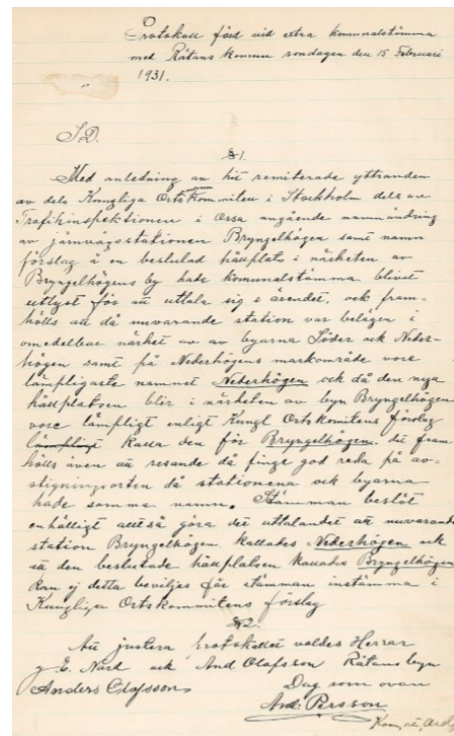 Protokoll förd vid extra komunalstämma
med Rätans komun söndagen den 15 Februari
1931.
S.D.
§1.
Med anledning av hit remiterade yttranden
av dels Kungliga Ortskomiten i Stockholm dels av
Trafikinspektionen i Orsa angående namnändring
av järnvägsstationen Bryngelhögen samt namn
förslag å en beslutad hållplats i närheten av
Bryngelhögens by hade komunalstämma blivit
utlyst för att uttala sig i ärendet, ock fram-
hölls att då nuvarande station var belägen i
omedelbar närhet av av byarna Söder ock Neder-
högen samt på Nederhögens markområde vore
lämpligaste namnet Nederhögen ock då den nya
hållplatsen blir i närheten av byn Bryngelhögen
vore lämpligt enligt Kungl Ortskomitens förslag
lämpligt kalla den för Bryngelhögen. det fram
hölls även att resande då finge god reda på av-
stigningsorten då stationena ock byarna
hade samma namn. Stämman beslöt
enhälligt att så göra det uttalandet att nuvarande
station Bryngelhögen kallades Nederhögen ock
att den beslutade hållplatsen kallades Bryngelhögen
Kan ej detta beviljas får stämman instämma i
Kungligen Ortskommitens förslag
§2.
Att justera protokollet valdes Herrar
J. E. Nord ock And Olofsson Rätans byn
Anders Olofsson Dag som ovan
And: Persson
Kom. st, Ordf